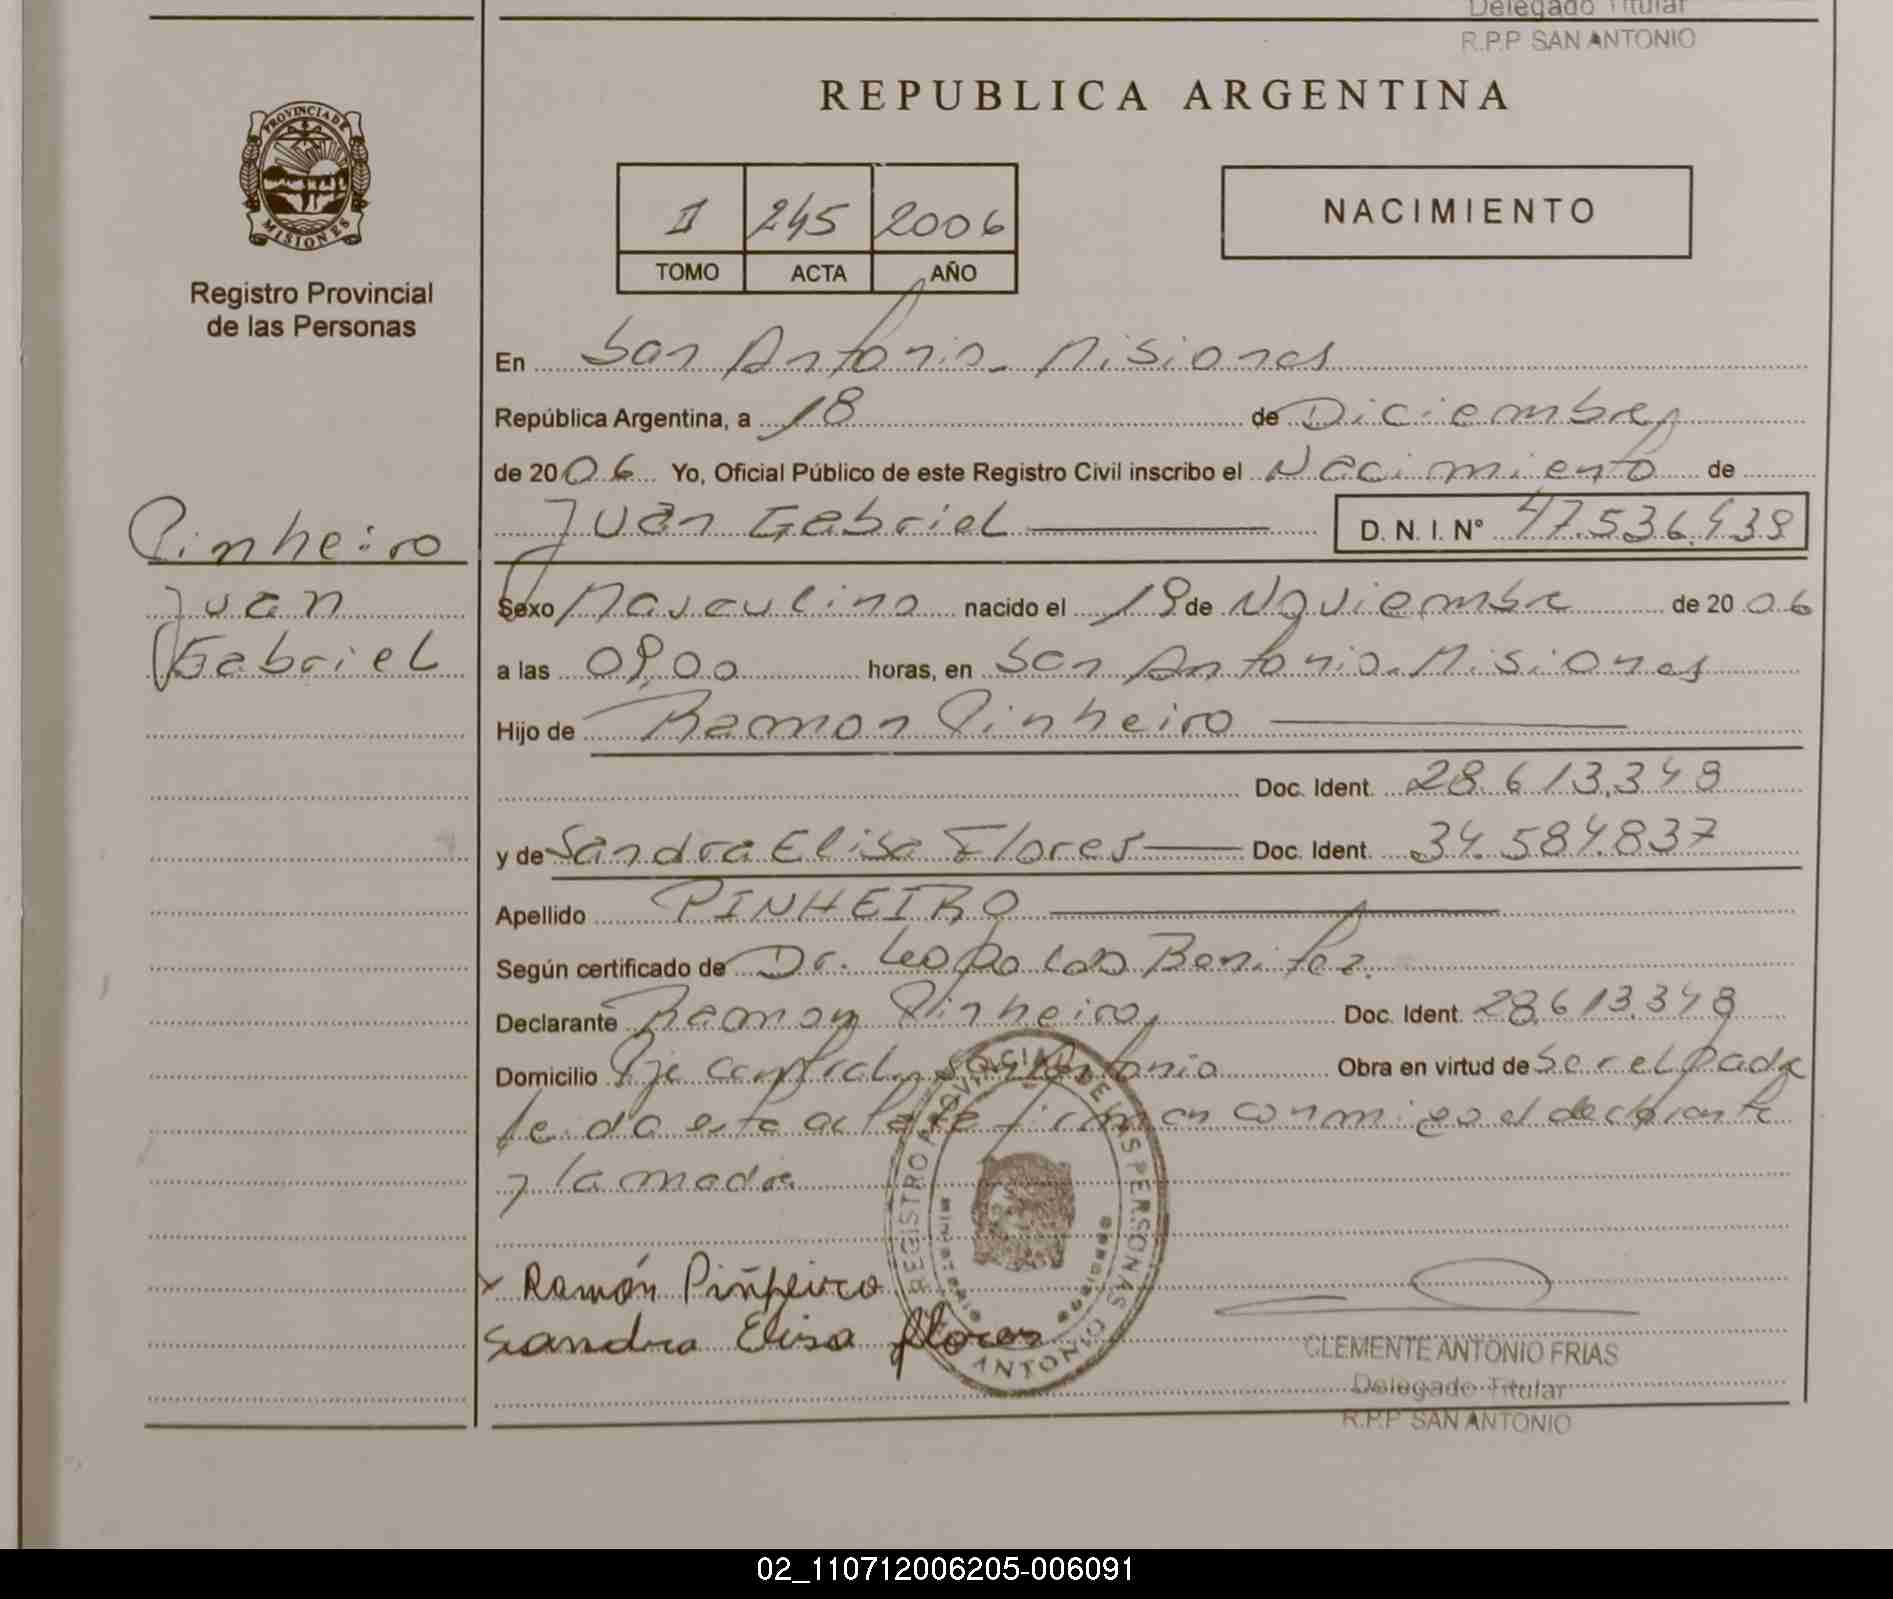 Delegado Titular
R.P.P SAN ANTONIO
REPUBLICA ARGENTINA
PROVINCIA DE
MISIONES
Registro Provincial
de las Personas
II 245 2006
TOMO ACTA AÑO
NACIMIENTO
En San Antonio - Misiones
República Argentina, a 18 de Diciembre
de 2006 Yo, Oficial Público de este Registro Civil inscribo el Nacimiento de
Juan Gabriel D. N. I. N° 47.536.439
Pinheiro
Juan
Gabriel
Sexo Masculino nacido el 19 de Noviembre de 2006
a las 09,00 horas, en San Antonio. Misiones
Hijo de Ramon Pinheiro
Doc. Ident. 28.613.348
y de Sandra Elisa Flores Doc. Ident. 34.584.837
Apellido PINHEIRO
Según certificado de Dr. Leopoldo Benitez.
Declarante Ramon Pinheiro Doc. Ident. 28.613.348
Domicilio Pje central San Antonio Obra en virtud de Ser el Padre
leida esta acta firman conmigo el declarante
y la madre
REGISTRO PROVINCIAL DE LAS PERSONAS
ANTONIO
Ramón Piñheiro
Sandra Elisa flores
CLEMENTE ANTONIO FRIAS
Delegado Titular
R.P.P SAN ANTONIO
02_110712006205-006091